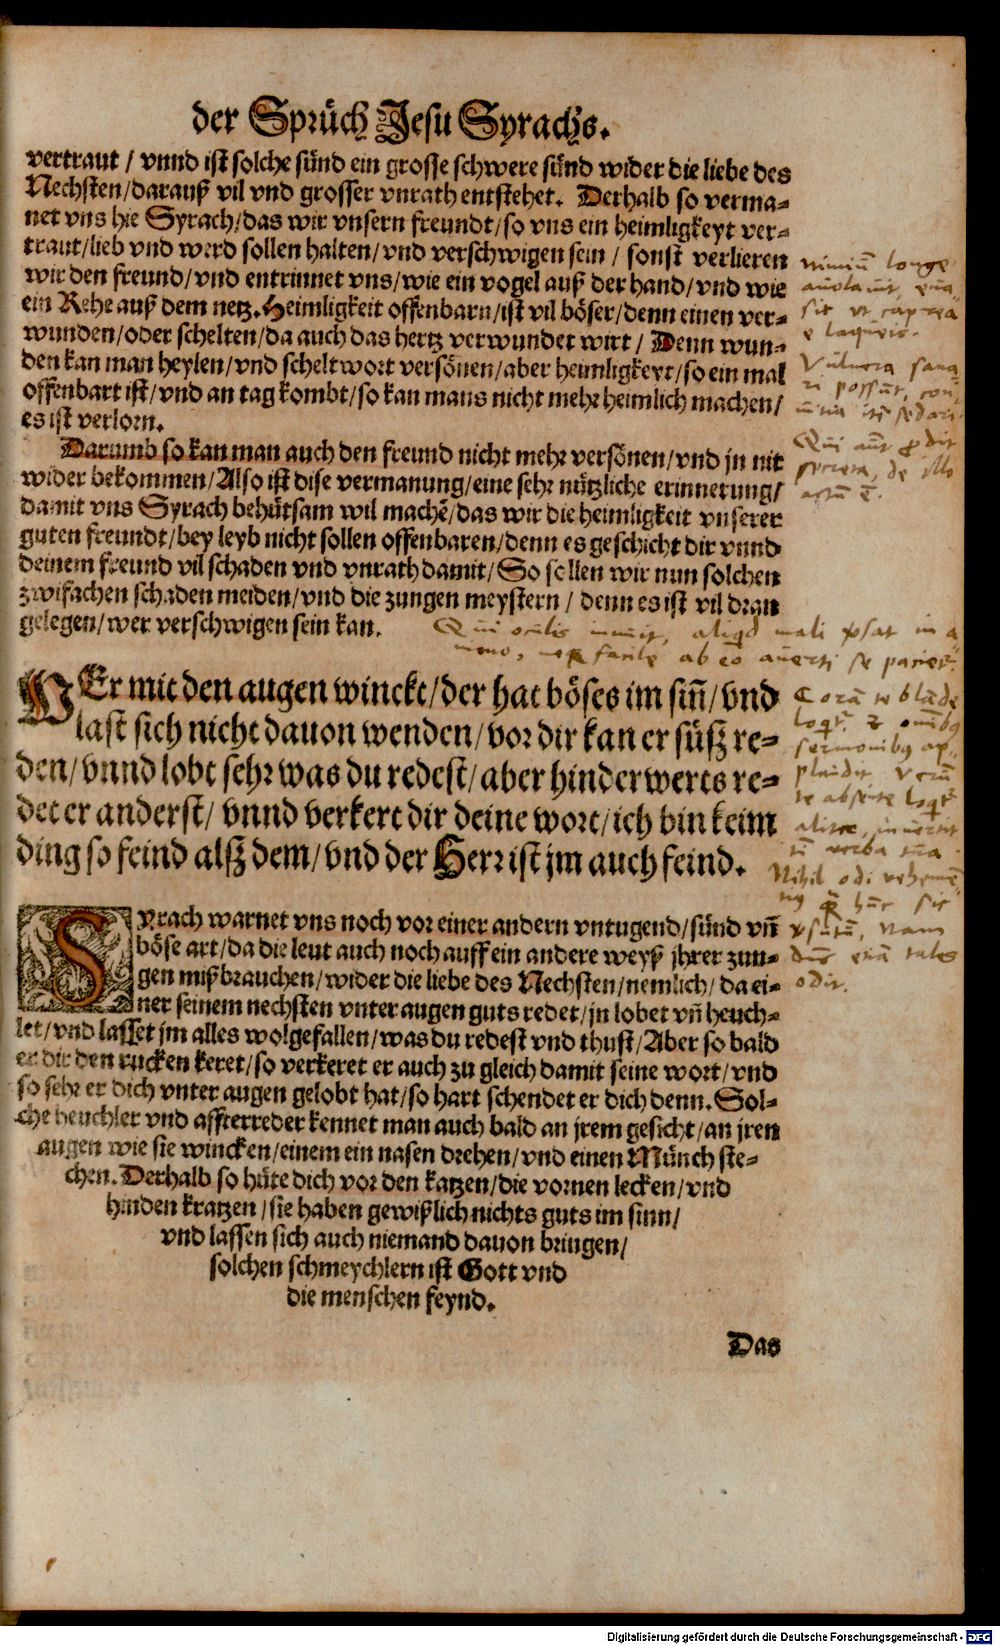 der Sprüch Jesu Syrachs.
vertraut / vnnd ist solche sünd ein grosse schwere sünd wider die liebe des
Nechsten/darauß vil vnd grosser vnrath entstehet. Derhalb so verma=
net vns hie Syrach/das wir vnsern freundt/so vns ein heimligkeyt ver=
traut/lieb vnd werd sollen halten/vnd verschwigen sein / sonst verlieren
wir den freund/vnd entrinnet vns/wie ein vogel auß der hand/vnd wie
ein Rehe auß dem netz. Heimligkeit offenbarn/ist vil böser/denn einen ver=
wunden/oder schelten/da auch das hertz verwundet wirt / Denn wun=
den kan man heylen/vnd scheltwort versönen/aber heimligkeyt/so ein mal
offenbart ist/vnd an tag kombt/so kan mans nicht mehr heimlich machen/
es ist verlorn.
Darumb so kan man auch den freund nicht mehr versönen/vnd jn nit
wider bekommen/Also ist dise vermanung/eine sehr nützliche erinnerung/
damit vns Syrach behütsam wil machē/das wir die heimligkeit vnserer
guten freundt/bey leyb nicht sollen offenbaren/denn es geschicht dir vnnd
deinem freund vil schaden vnd vnrath damit/So sollen wir nun solchen
zwifachen schaden meiden/vnd die zungen meystern / denn es ist vil dran
gelegen/wer verschwigen sein kan.
WEr mit den augen winckt/der hat böses im siñ/vnd
last sich nicht dauon wenden/vor dir kan er süsz re=
den/vnnd lobt sehr was du redest/aber hinderwerts re=
det er anderst/vnnd verkert dir deine wort/ich bin keim
ding so feind alsz dem/vnd der Herr ist jm auch feind.
SYrach warnet vns noch vor einer andern vntugend/sünd vñ
böse art/da die leut auch noch auff ein andere weyß jhrer zun=
gen mißbrauchen/wider die liebe des Nechsten/nemlich/da ei=
ner seinem nechsten vnter augen guts redet/jn lobet vñ heuch=
let/vnd lasset jm alles wolgefallen/was du redest vnd thust/Aber so bald
er dir den rucken keret/so verkeret er auch zu gleich damit seine wort/vnd
so sehr er dich vnter augen gelobt hat/so hart schendet er dich denn. Sol=
che heuchler vnd affterreder kennet man auch bald an jrem gesicht/an jren
augen wie sie wincken/einem ein nasen drehen/vnd einen Münch ste=
chen. Derhalb so hüte dich vor den katzen/die vornen lecken/vnd
hinden kratzen/sie haben gewißlich nichts guts im sinn/
vnd lassen sich auch niemand dauon bringen/
solchen schmeychlern ist Gott vnd
die menschen feynd.
Das
e laqueis.
Vulnera
Nihil odi
odit.
Digitalisierung gefördert durch die Deutsche Forschungsgemeinschaft - DFG